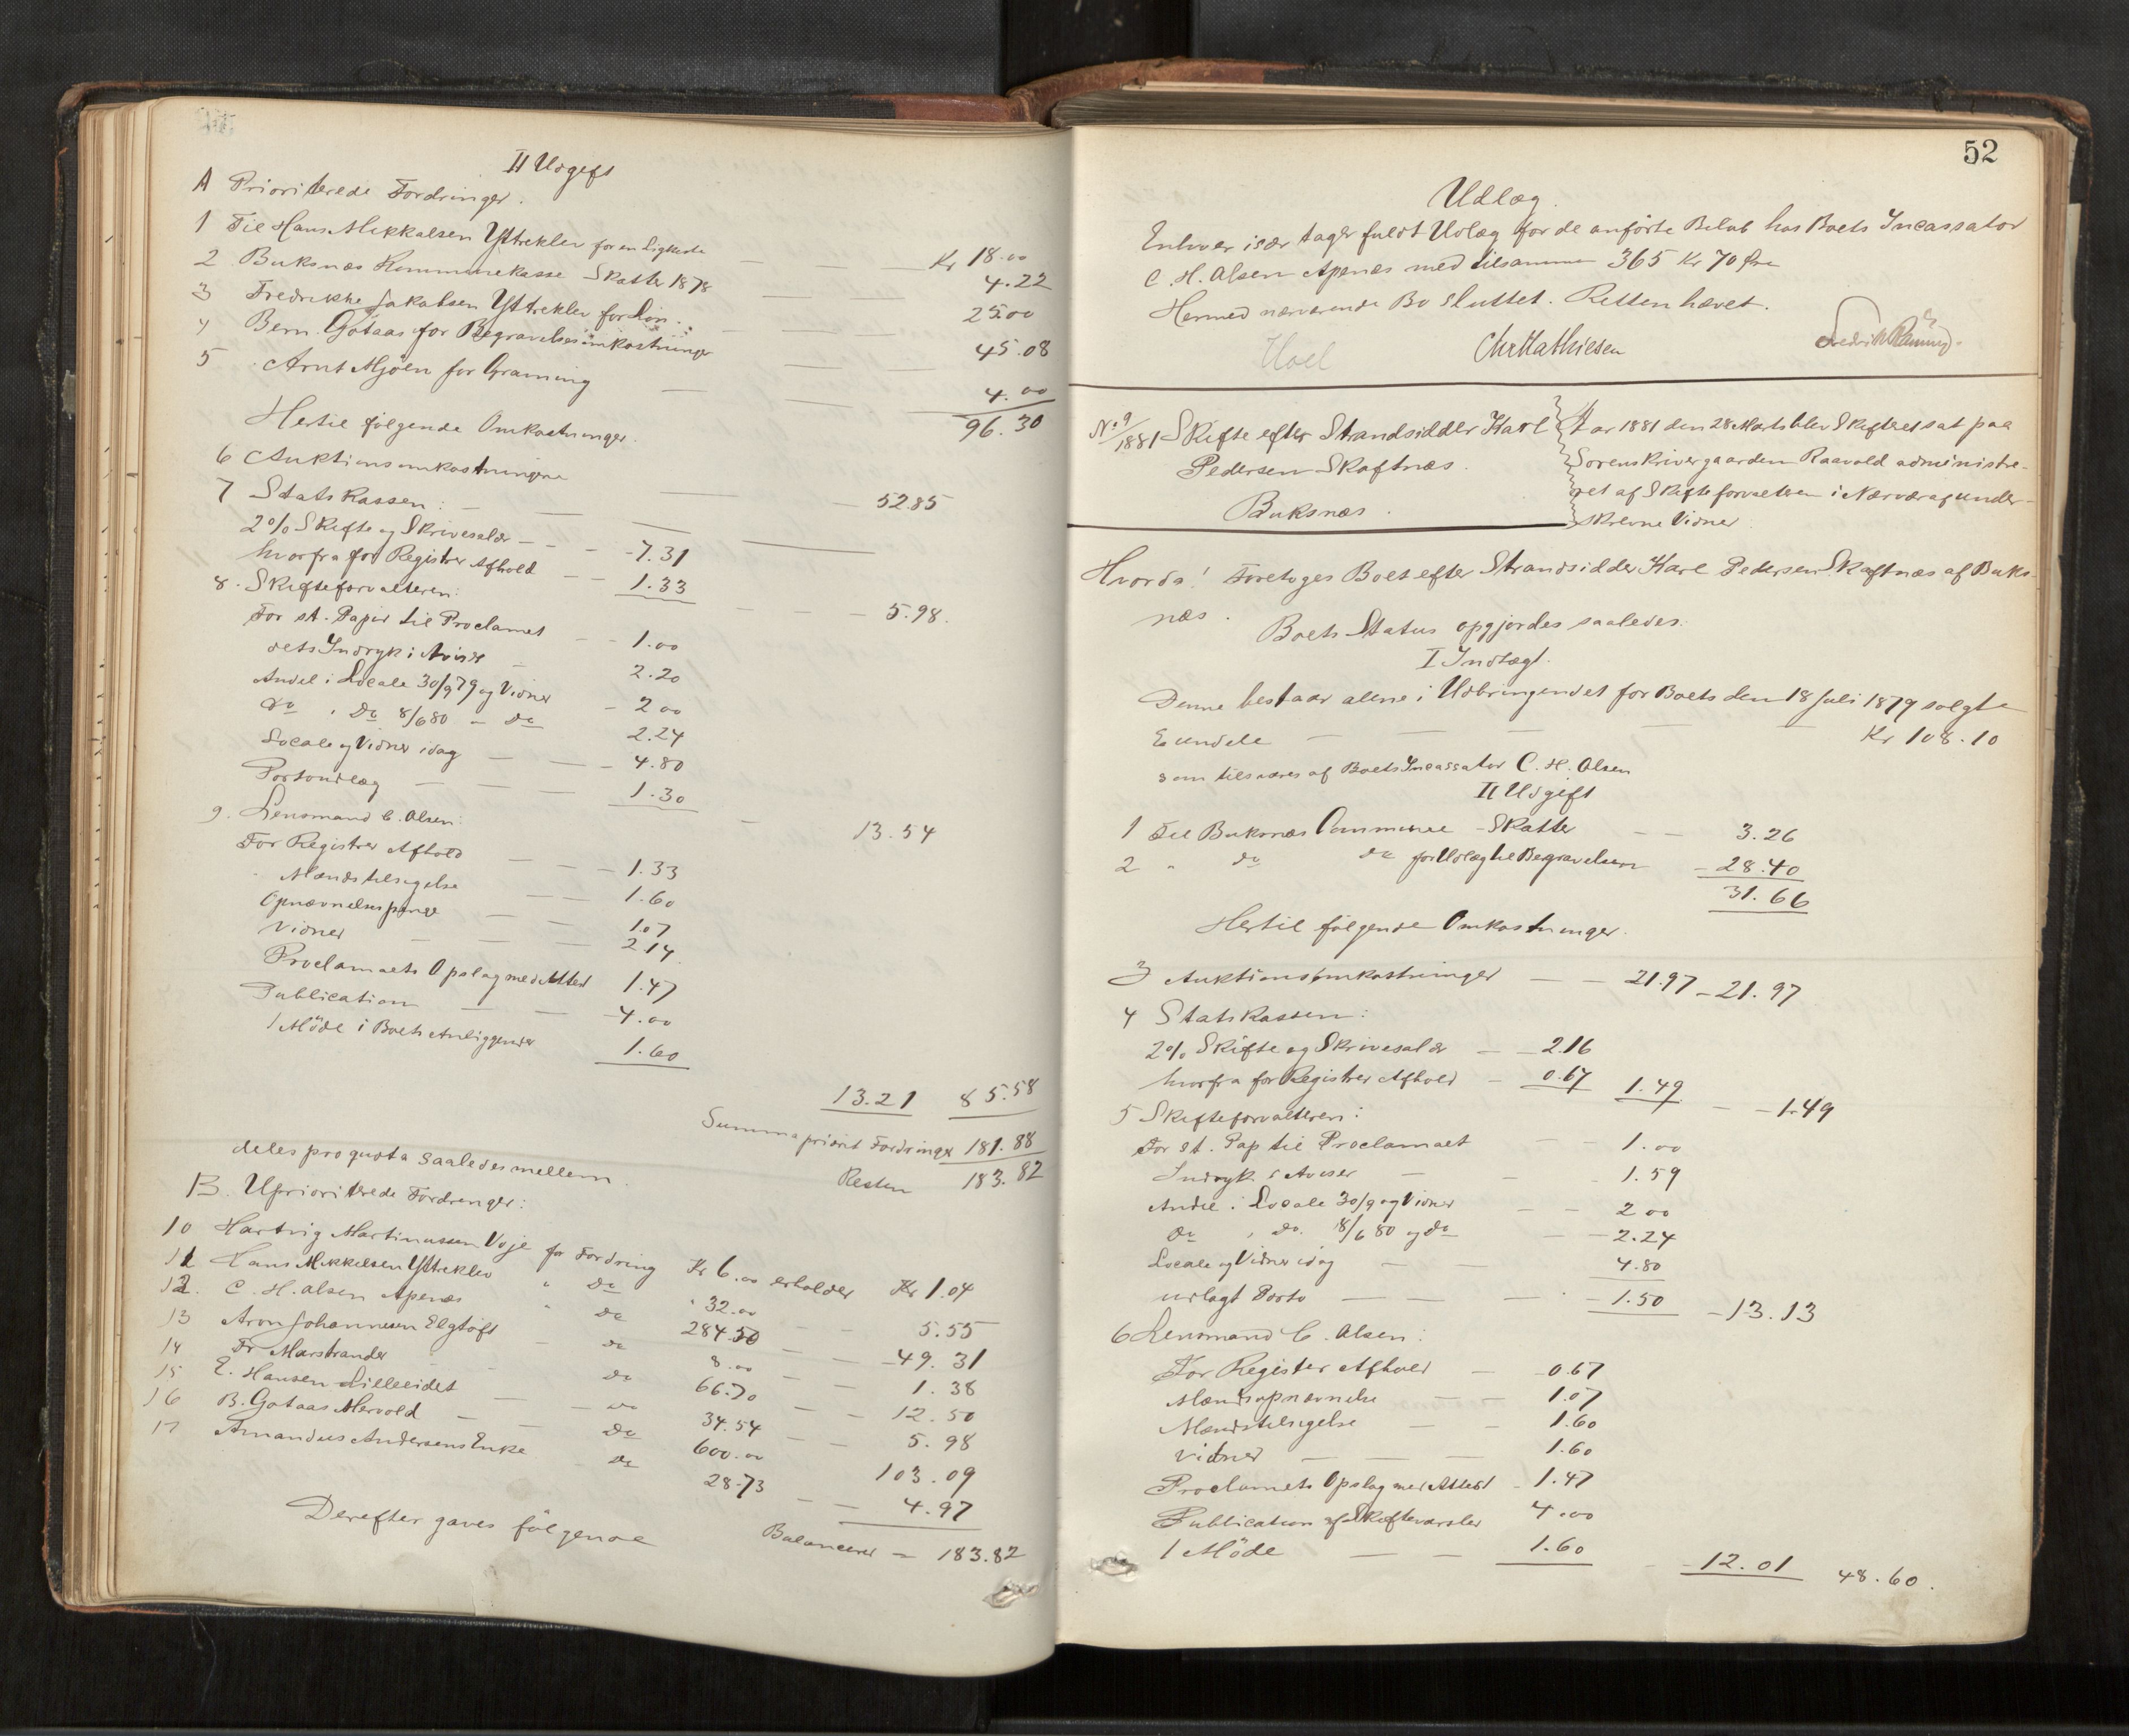 II Udgift
A Prioriterede Fordringer.
1 Til Hans Mekkalsen Yttreklev for en Ligkiste — Kr 18.00
2 Buksnæs Kommunekasse Skatter 1878 — 4.22
3 Fredrikke Jakobsen Yttreklev for Løn. — 25.00
4 Bern. Gotaas for Begravelsesomkostninger — 45.08
5 Arnt Mjöen for Graming — 4.00
96.30
Hertil følgende Omkostninger.
6 Auktionsomkostningerne — 52.85
7 Statskassen:
2% Skifte og Skrivesalær — 7.31
hvorfra for Registrer Afhold — 1.33 — 5.98.
8. Skifteforvalteren:
For st. Papir til Proclamet — 1.00
dets Indryk i Aviser — 2.20
Andel i Locale 30/9 79 og Vidner — 2 00
Do i Do 8/6 80 — Do 2.24
Locale og Vidner idag — 4.80
Portoudlæg — 1.30 — 13.54
9. Lensmand C. Olsen:
For Registrer Afhold — 1.33
Mændstilsigelse — 1.60
Opnævnelsespenge — 1.07
Vidner — 2.14
Proclamaets Opslag med Attest 1.47
Publication — 4.00
1 Möde i Boets Anliggender 1.60
13.21 85.58
Summa priorit Fordringer 181.88
Resten 183.82
deles pro quota saaledes mellem.
B. Uprioriterede Fordringer:
10 Hartvig Martinussen Voje for Fordring Kr 6.00 erholder Kr 1.04
11 Hans Mekkelsen Yttreklev " Do " 32.00 — 5.55
12. C. H. Olsen Apenæs " Do 284.50 — 49.31
13 Aron Johannesen Elgtoft — Do 8.00 — 1.38
14 Fr Marstrander — Do 66.70 — 12.50
15 E. Hansen Lilleeidet — Do 34.54 — 5.98
16 B. Gotaas Mervold — Do 600.00 103.09
17 Amandus Andersens Enke — Do 28.73 — 4.97
Balancerer = 183.82
Derefter gaves følgende
52
Udlæg.
Enhver især tager fuldt Udlæg for de anførte Beløb hos Boets Incassator
C. H. Olsen Apenæs med tilsammen 365 Kr 70 Øre
Hermed nærværende Bo sluttet. Retten hævet.
Hoel Chr Mathiesen Fredrik
No 9/1881 Skifte efter Strandsidder Karl
Pedersen Skaftnæs.
Buksnæs.
Aar 1881 den 28 Marts blev Skifteret sat paa
Sorenskrivergaarden Raavold administre-
ret af Skifteforvalteren i Nærvær af under-
skrevne Vidner
Hvorda! Foretoges Boet efter Strandsidder Karl Pedersen Skaftnæs af Buks-
næs.
Boets Status opgjordes saaledes:
I Indtægt.
Denne bestaar alene i Udbringendet for Boets den 18 Juli 1879 solgte
Eiendele — Kr 108.10
som tilsvares af Boets Incassator C. H. Olsen
II Udgift
1 Til Buksnæs Commune — Skatter — 3.26
2 " do do for Udlæg til Begravelsen — 28.40
31.66
Hertil følgende Omkostninger.
3 Auktionsomkostninger — 21.97 — 21.97
4 Statskassen:
2% Skifte og Skrivesalær — 2.16
hvorfra for Registrer Afhold — 0.67 1.49 — 1.49
5 Skifteforvalteren:
For st. Pap til Proclamaet — 1.00
Indryk i Aviser — 1.59
Andel i Locale 30/9 og Vidner — 2 00
Do i do. 8/6 80 og do — 2.24
Locale og Vidner idag — 4.80
udlagt Porto — 1.50 — 13.13
6 Lensmand C. Olsen:
For Register Afhold — 0.67
Mændsopnævnelse — 1.07
Mændstilsigelse — 1.60
Vidner — 1.60
Proclamets Opslag med Attest — 1.47
Publication af Skiftevarsler 4.00
1 Möde — 1.60 — 12.01 48.60.